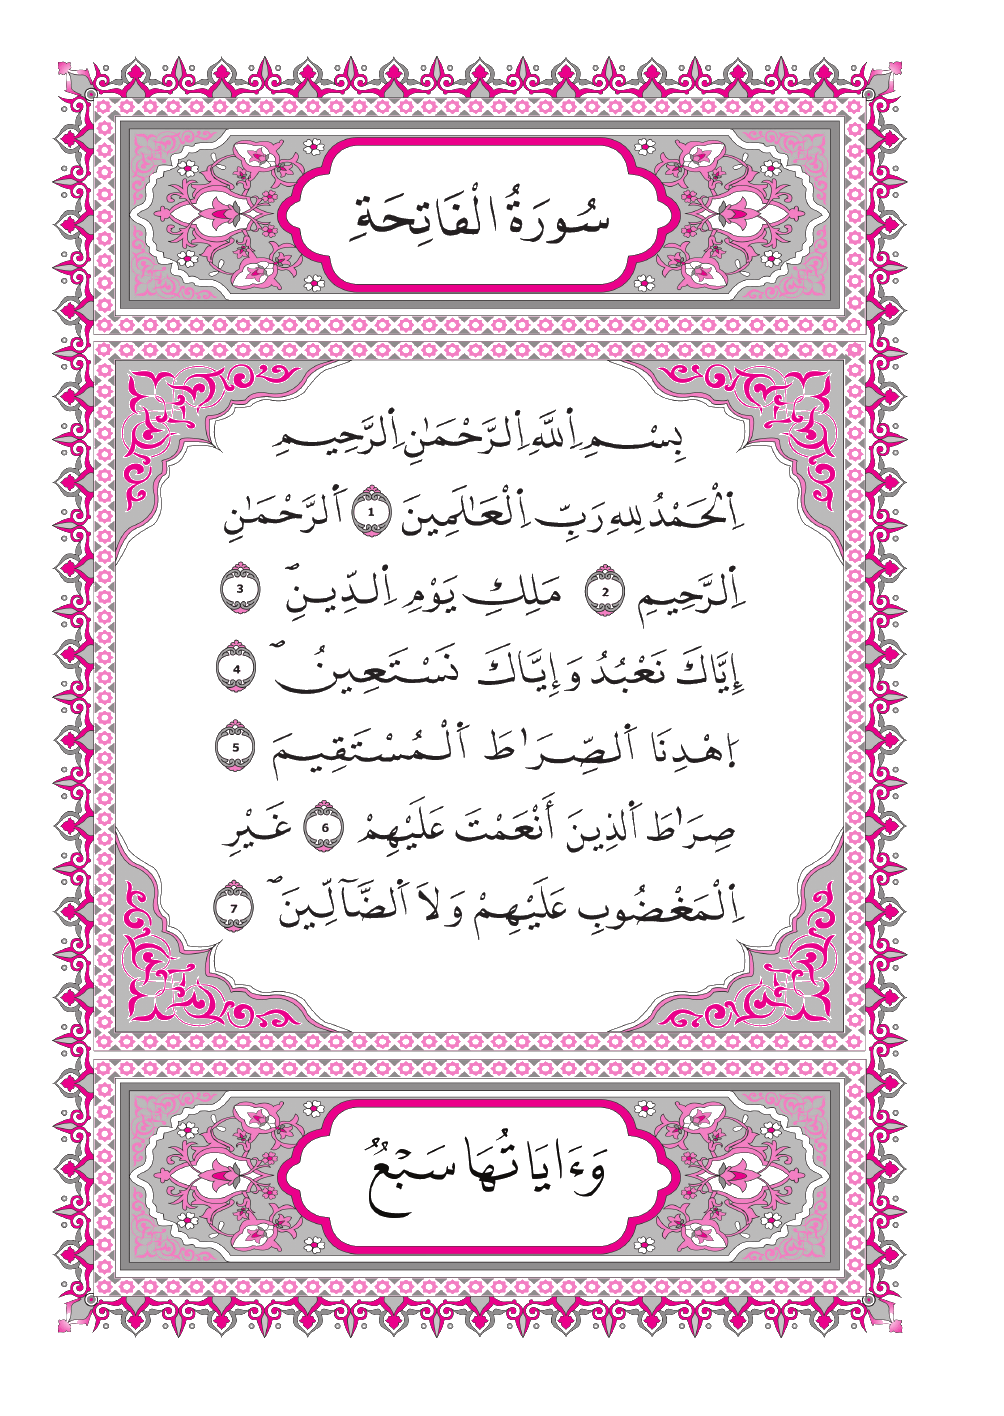 سُورَةُ الْفَاتِحَةِ
بِسْمِ اِ۬للَّهِ اِ۬لرَّحْمَٰنِ اِ۬لرَّحِيمِ
اِ۬لْحَمْدُ لِلهِ رَبِّ اِ۬لْعَٰلَمِينَ 1 اَ۬لرَّحْمَٰنِ
اِ۬لرَّحِيمِ 2 مَلِكِ يَوْمِ اِ۬لدِّينِۖ 3
إِيَّاكَ نَعْبُدُ وَإِيَّاكَ نَسْتَعِينُۖ 4
اِ۪هْدِنَا اَ۬لصِّرَٰطَ اَ۬لْمُسْتَقِيمَ 5
صِرَٰطَ اَ۬لذِينَ أَنْعَمْتَ عَلَيْهِمْ 6 غَيْرِ
اِ۬لْمَغْضُوبِ عَلَيْهِمْ وَلَا اَ۬لضَّآلِّينَۖ 7
وَءَايَاتُهَا سَبْعٌ